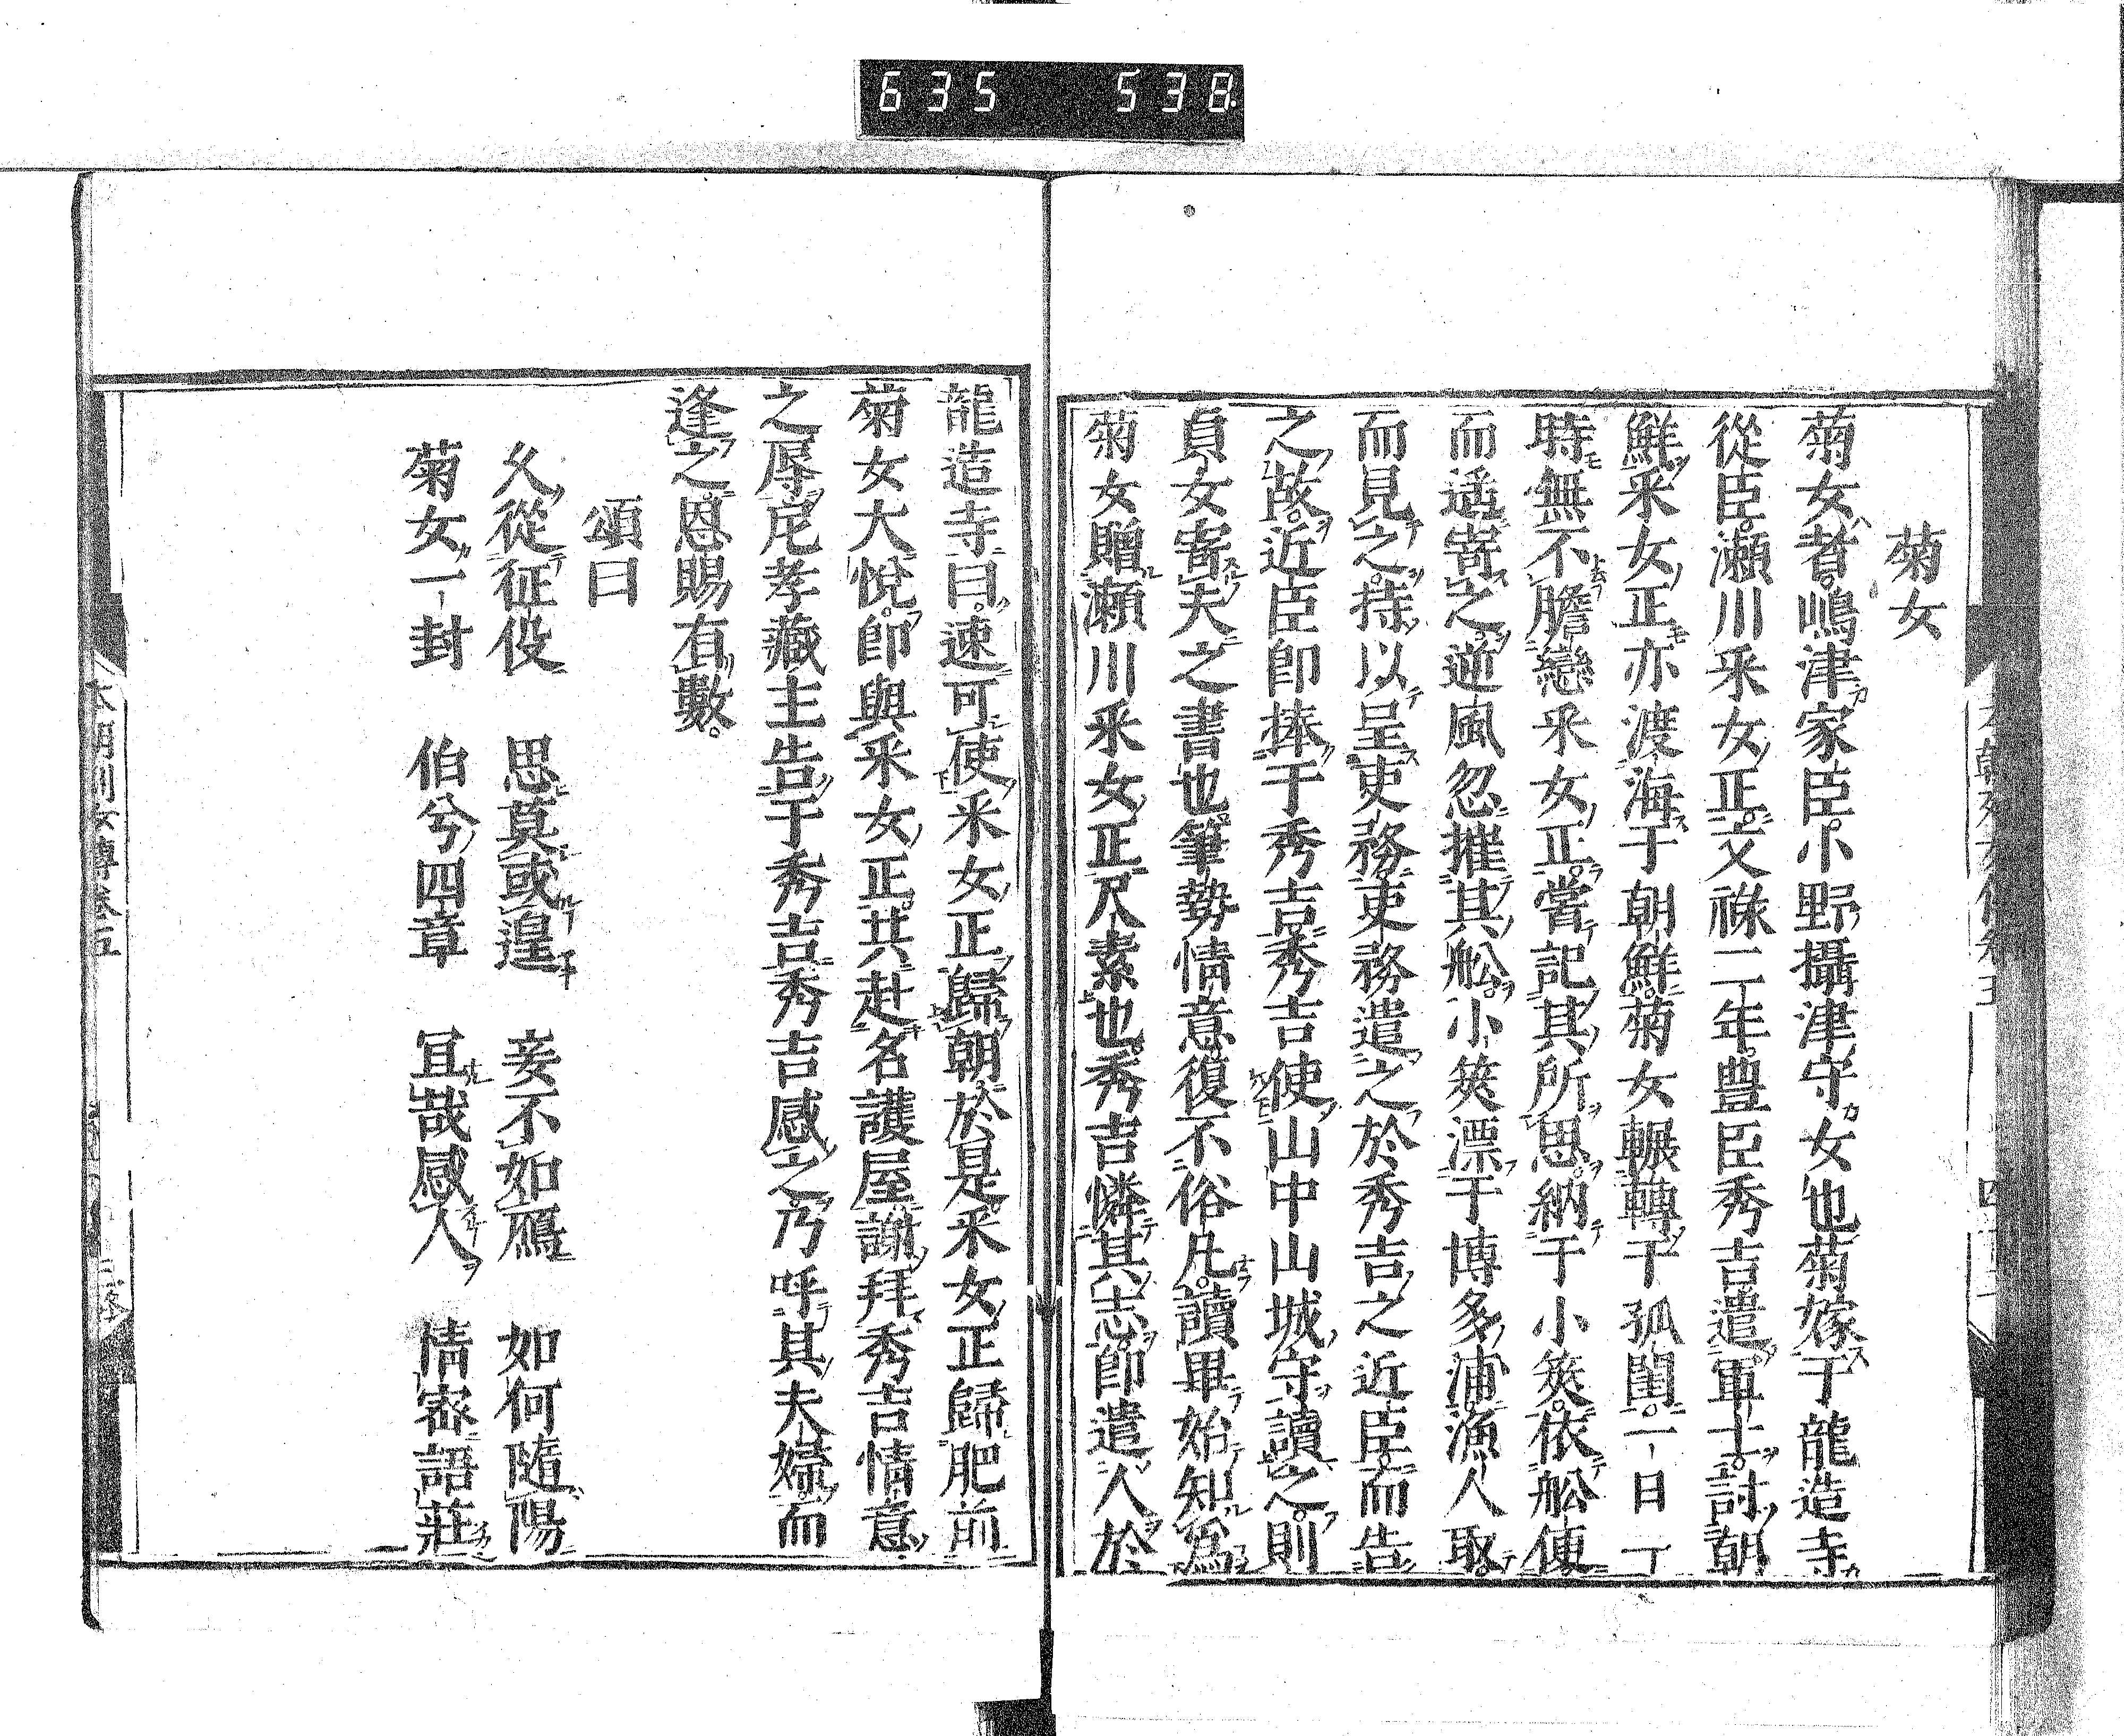 635 538
菊女
菊女者嶋津家臣小野攝津守女也菊嫁于龍造寺
從臣瀬川采女正文祿二年豊臣秀吉遣軍士討朝
鮮采女正亦渡海于朝鮮菊女輾轉于孤閨一日一
時無不膽戀采女正嘗記其所思納于小筴依舩便
而遥寄之逆風忽摧其舩小筴漂于博多浦漁人取
而見之持以呈吏務吏務遣之於秀吉之近臣而告
之故近臣卽捧于秀吉秀吉使山中山城守讀之則
貞女寄夫之書也筆勢情意復不俗凡讀畢始知爲
菊女贈瀬川采女正尺素也秀吉憐其志卽遣人於
龍造寺曰速可使采女正歸朝於是采女正歸肥前
菊女大悅卽與采女正共赴名護屋謝拜秀吉情意
之辱尼孝藏主告于秀吉秀吉感之乃呼其夫婦而
逢之恩賜有數
頌曰
久從征役 思莫或遑 妾不如鴈 如何隨陽
菊女一封 伯兮四章 冝哉感人 情密語莊
本朝列女傳卷五